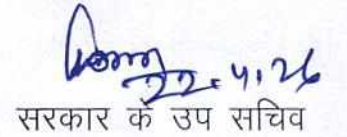 22.4.26
सरकार के उप सचिव